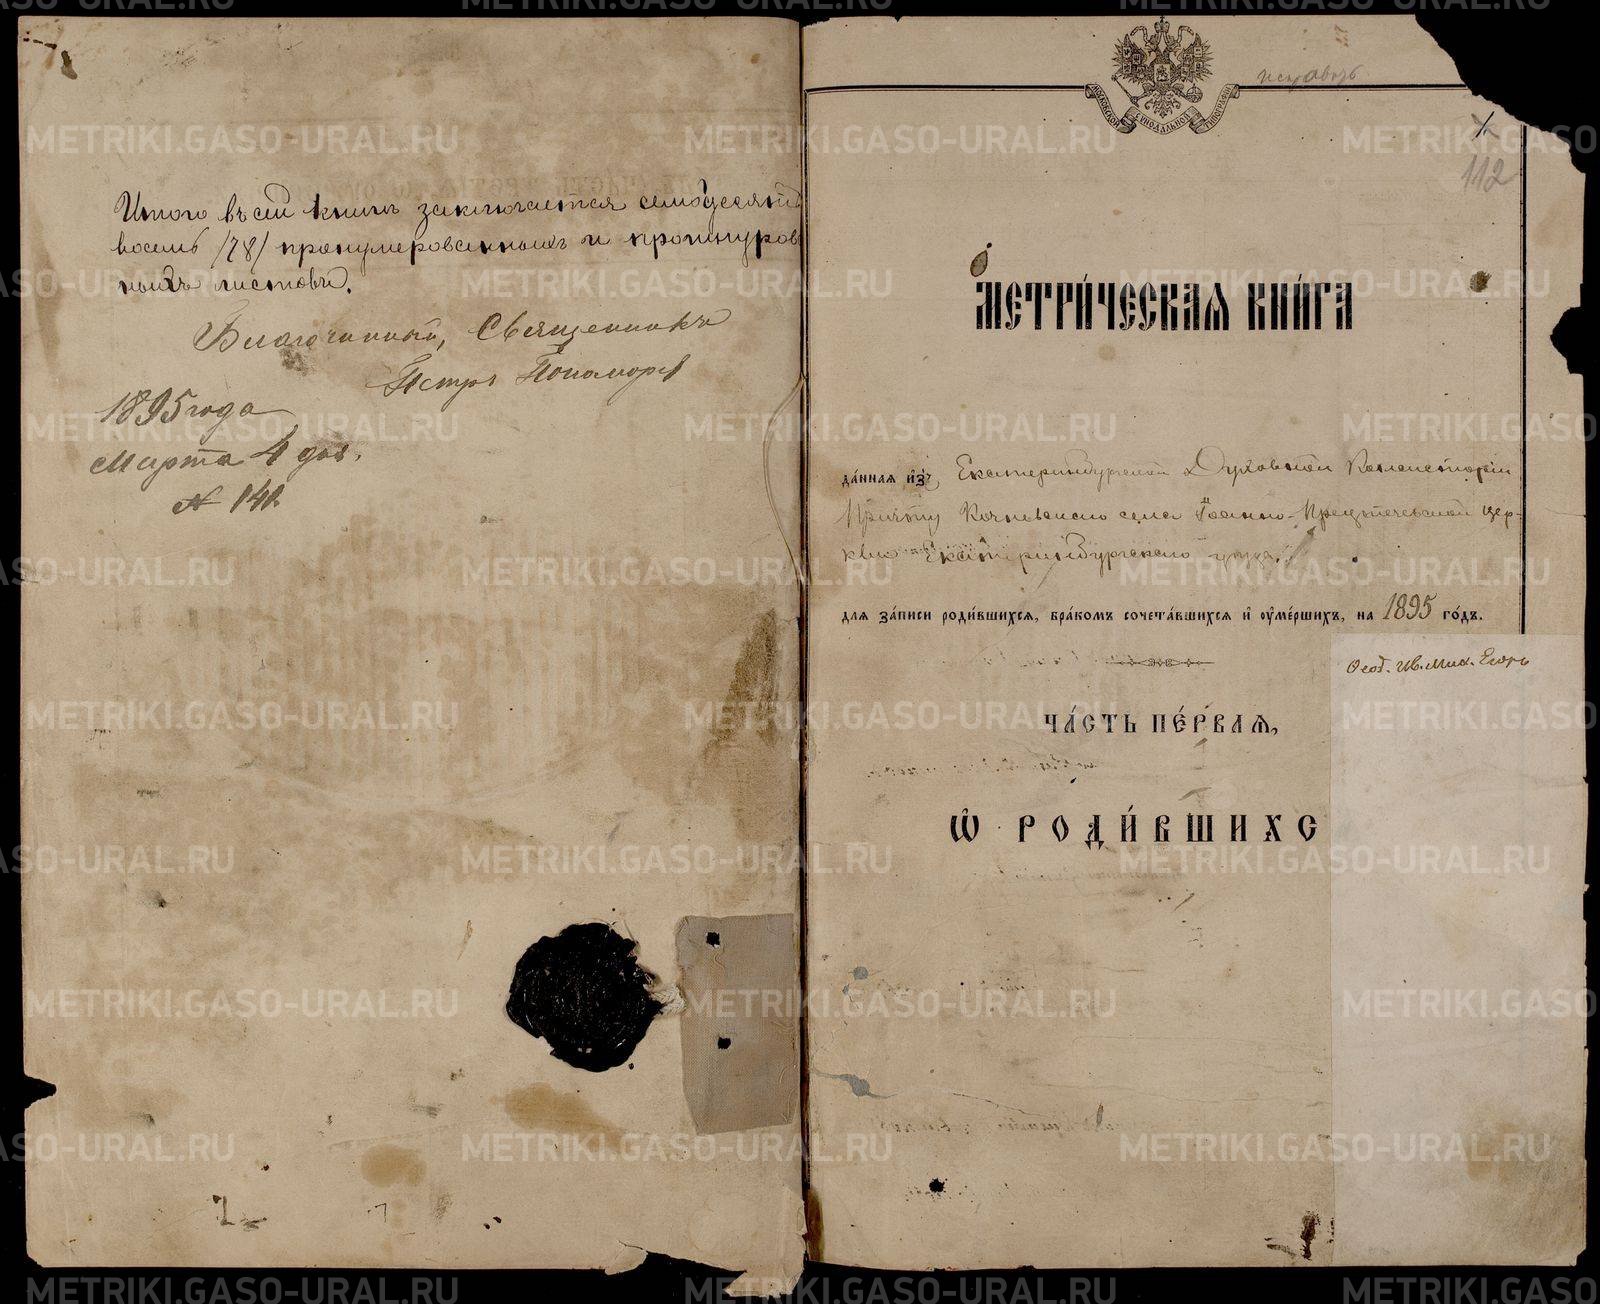 Итого въ сей книгѣ заключается семьдесятъ
восемь /78/ пронумерованныхъ и прошнуров
ныхъ листовъ.
Благочинный, Священникъ
Петръ Пономоревъ
1895 года
Марта 4 дня.
№ 141.
МОСКОВСКОЙ СѴНОДАЛЬНОЙ ТИПОГРАФІИ
1.
112
МЕТРИ́ЧЕСКАѦ КНИ́ГА
да́нная и҆зъ Екатеринбургской Духовной Консисторіи
Причту Кочневскаго села Іоанно-Предтечевской цер-
кви Екатеринбургскаго уѣзда.
для за́писи роди́вшихся, бра́комъ сочета́вшихся и҆ оуме́ршихъ, на 1895 го́дъ.
Ѳеод. Ив. Мих. Егоръ
ЧА́СТЬ ПЕ́РВАѦ,
Ѡ҆ РОДИ́ВШИХС
METRIKI.GASO-URAL.RU